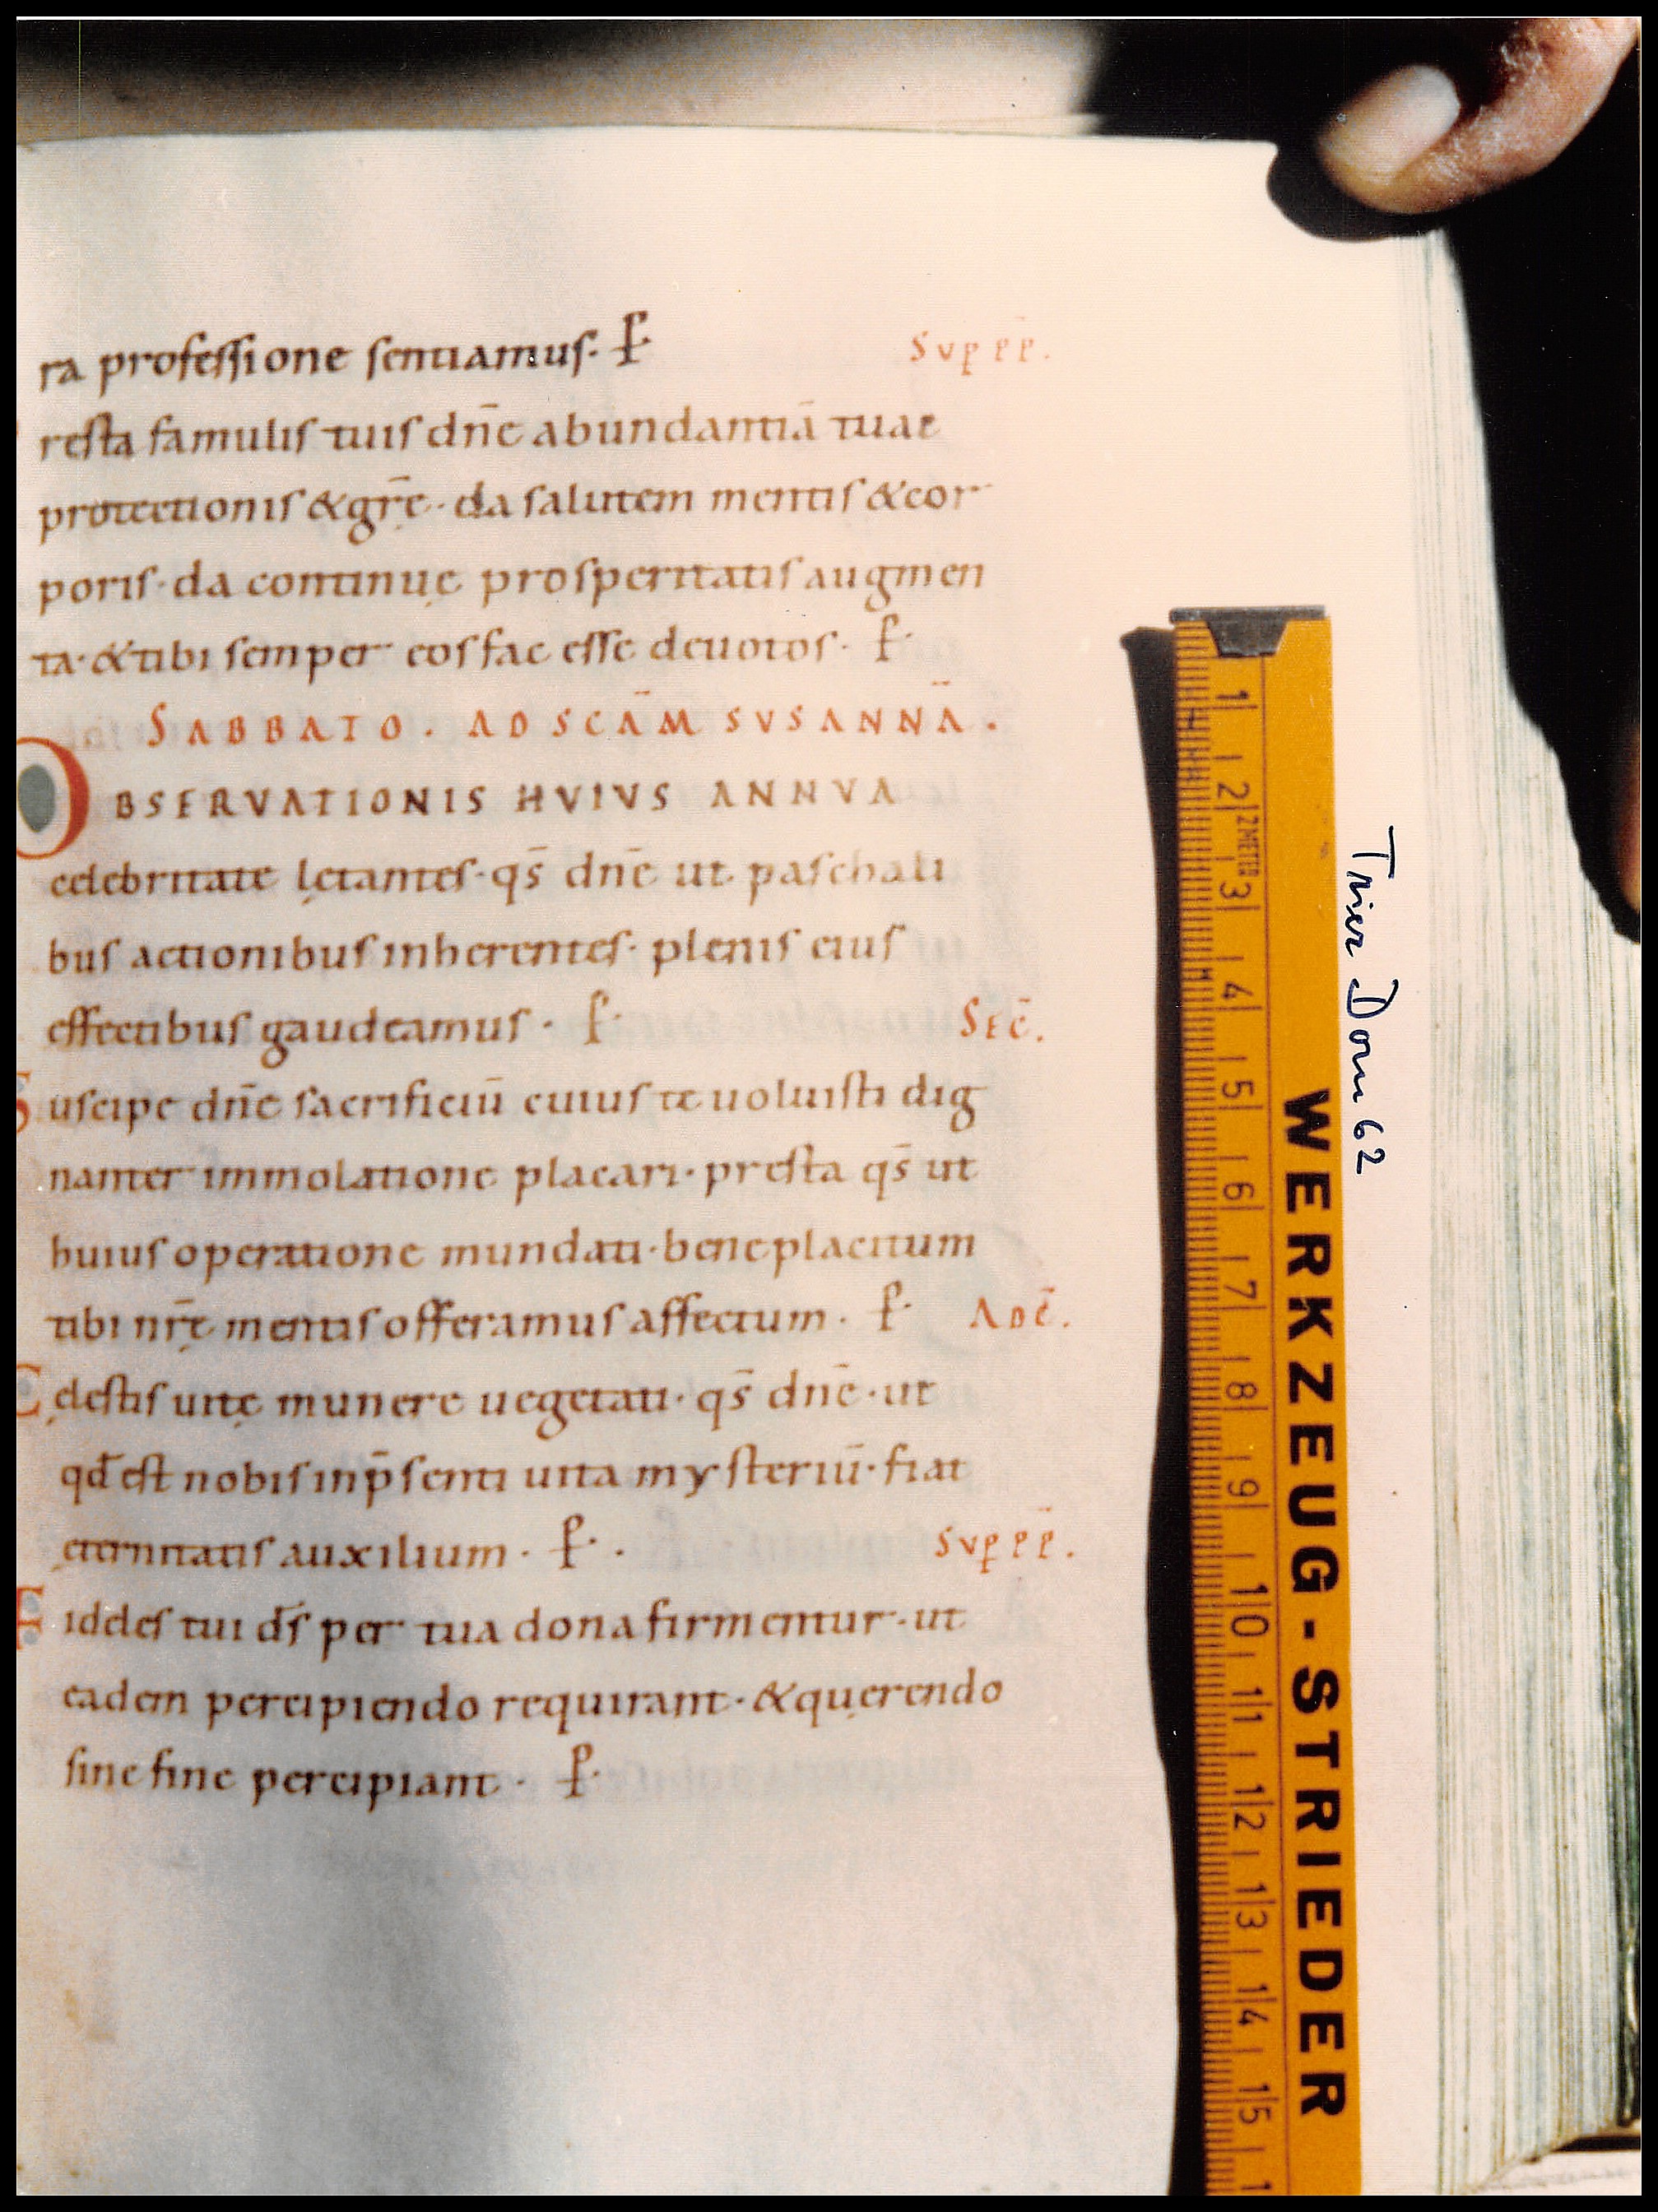 ra professione sentiamus· P̵·
SVP̱ P̄P̄.
resta famulis tuis dn̄e abundantiā tuae
protectionis & gr̄ę· da salutem mentis & cor
poris· da continuę prosperitatis augmen
ta· & tibi semper eos fac esse deuotos· P̵·
SABBATO. AD SC̄AM SVSANNĀ.
OBSERVATIONIS HVIVS ANNVA
celebritate lętantes· qs̄ dn̄e ut paschali
bus actionibus inherentes· plenis eius
effectibus gaudeamus· P̵·
SEC̄.
Suscipe dn̄e sacrificiū cuius te uoluisti dig
nanter immolatione placari· presta qs̄ ut
huius operatione mundati· beneplacitum
tibi nr̄ę mentis offeramus affectum· P̵·
AD C̄.
Cęlestis uitę munere uegetati· qs̄ dn̄e· ut
qd̄ est nobis in p̄senti uita mysteriū· fiat
ęternitatis auxilium· P̵· .
SVP̱ P̄P̄.
Fideles tui ds̄ per tua dona firmentur· ut
eadem percipiendo requirant· & quęrendo
sine fine percipiant· P̵·
Trier Dom 62
2METER
WERKZEUG-STRIEDER
1 2 3 4 5 6 7 8 9 10 11 12 13 14 15